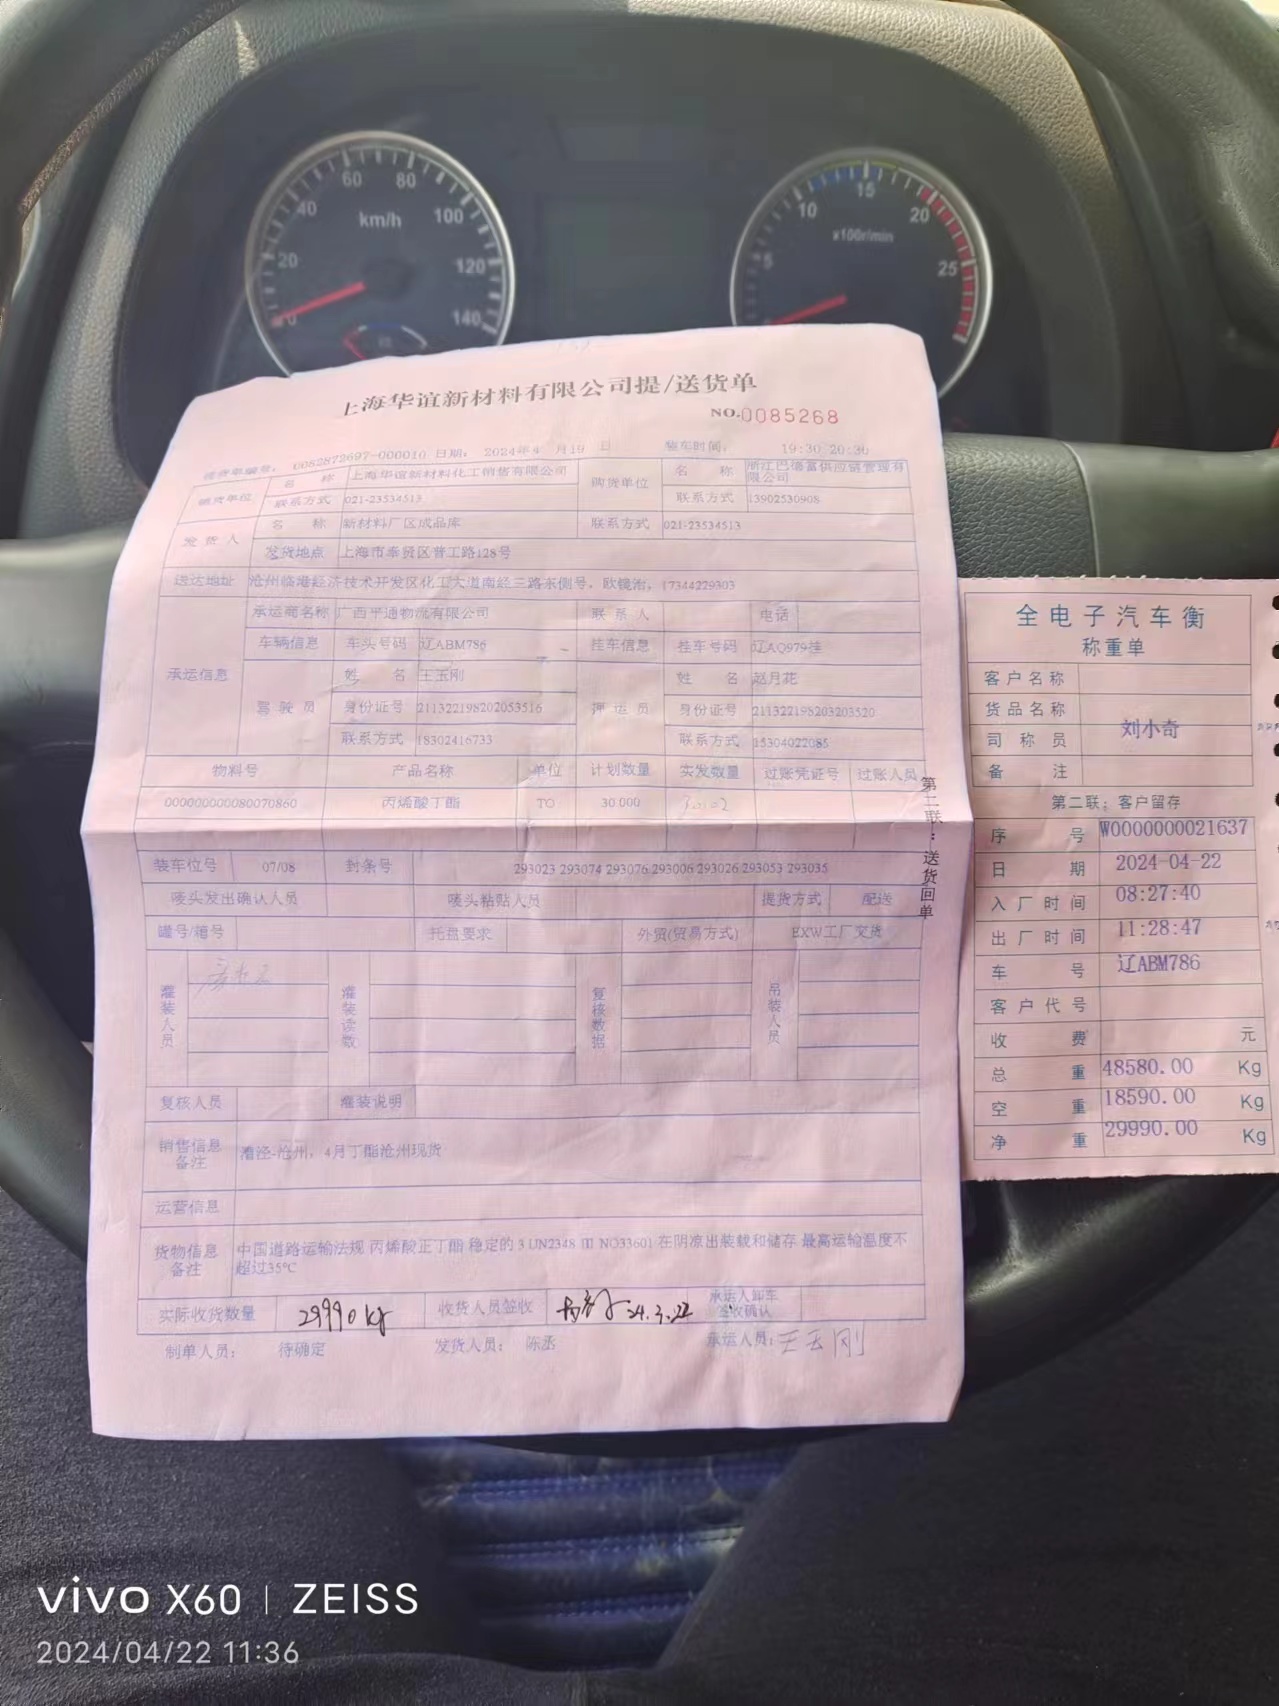 60 80
40 km/h 100
20 120
0 140
15
10 20
x100r/min
5 25
上海华谊新材料有限公司提/送货单
NO.0085268
提货单编号: 0082872697-000010 日期: 2024年4 月19 日 装车时间: 19:30-20:30
销货单位 名 称 上海华谊新材料化工销售有限公司 购货单位 名 称 浙江巴德富供应链管理有限公司
联系方式 021-23534513 联系方式 13902530908
发 货 人 名 称 新材料厂区成品库 联系方式 021-23534513
发货地点 上海市奉贤区普工路128号
送达地址 沧州临港经济技术开发区化工大道南经三路东侧号, 欧镜治, 17344229303
承运信息 承运商名称 广西平通物流有限公司 联 系 人 电话
车辆信息 车头号码 辽ABM786 挂车信息 挂车号码 辽AQ979挂
驾 驶 员 姓 名 王玉刚 押 运 员 姓 名 赵月花
身份证号 211322198202053516 身份证号 211322198203203520
联系方式 18302416733 联系方式 15304022085
物料号 产品名称 单位 计划数量 实发数量 过账凭证号 过账人员
000000000080070860 丙烯酸丁酯 TO 30.000
装车位号 07/08 封条号 293023 293074 293076 293006 293026 293053 293035
唛头发出确认人员 唛头粘贴人员 提货方式 配送
罐号/箱号 托盘要求 外贸(贸易方式) EXW工厂交货
灌装人员 灌装读数 复核数据 吊装人员
复核人员 灌装说明
销售信息备注 漕泾-沧州, 4月丁酯沧州现货
运营信息
货物信息备注 中国道路运输法规 丙烯酸正丁酯 稳定的 3 UN2348 III NO33601 在阴凉出装载和储存 最高运输温度不
超过35℃
实际收货数量 29990kg 收货人员签收 24.3.22 承运人卸车签收确认
制单人员: 待确定 发货人员: 陈丞 承运人员: 王玉刚
第二联:送货回单
全电子汽车衡
称重单
客户名称
货品名称
司 称 员 刘小奇
备 注
第二联: 客户留存
序 号 W0000000021637
日 期 2024-04-22
入厂时间 08:27:40
出厂时间 11:28:47
车 号 辽ABM786
客户代号
收 费 元
总 重 48580.00 Kg
空 重 18590.00 Kg
净 重 29990.00 Kg
vivo X60 | ZEISS
2024/04/22 11:36